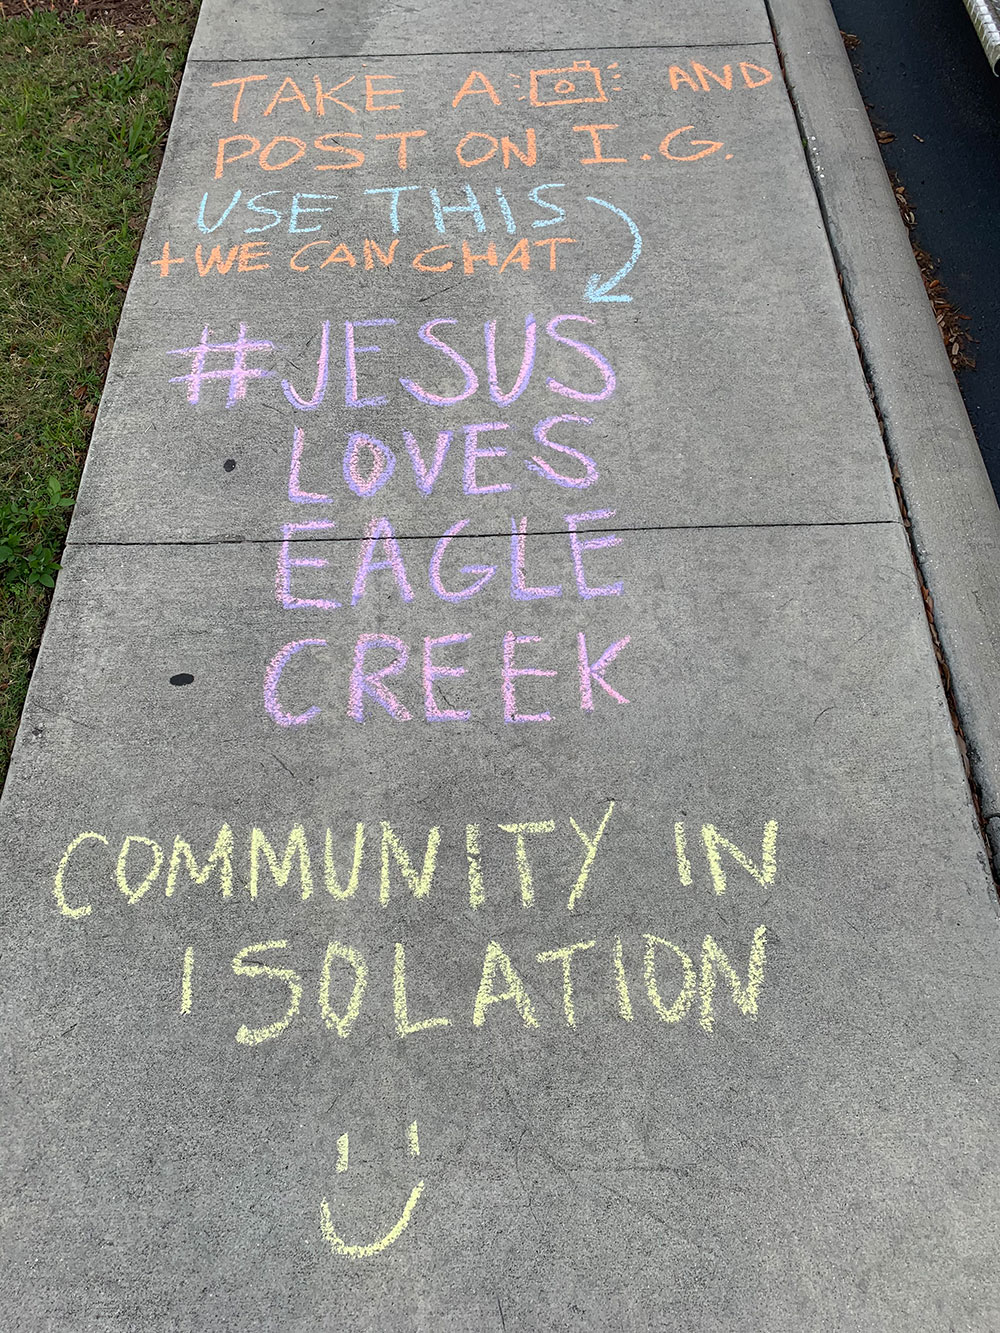 TAKE A AND
POST ON I.G.
USE THIS
+ WE CAN CHAT
#JESUS
LOVES
EAGLE
CREEK
COMMUNITY IN
ISOLATION